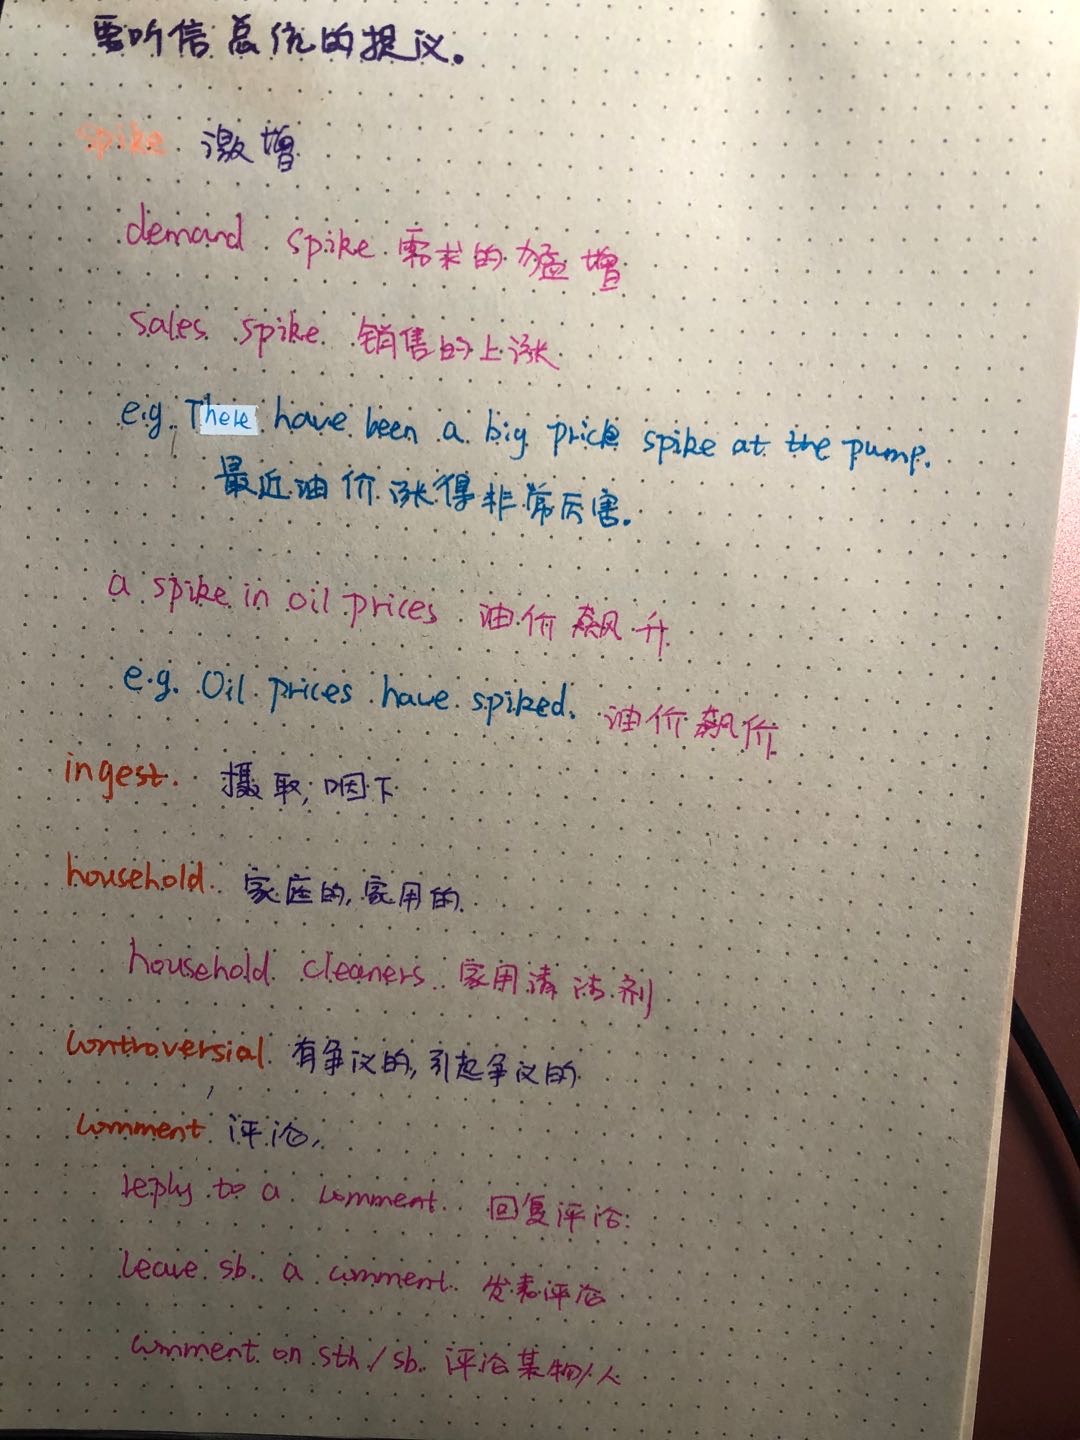 要听信总统的提议。
spike 激增
demand spike 需求的猛增
sales spike 销售的上涨
e.g. There have been a big price spike at the pump.
最近油价涨得非常厉害。
a spike in oil prices 油价飙升
e.g. Oil prices have spiked. 油价飙价
ingest. 摄取; 咽下
household. 家庭的, 家用的
household cleaners. 家用清洁剂
controversial 有争议的, 引起争议的
comment 评论,
reply to a comment. 回复评论:
leave sb. a comment. 发表评论
comment on sth/sb. 评论某物/人